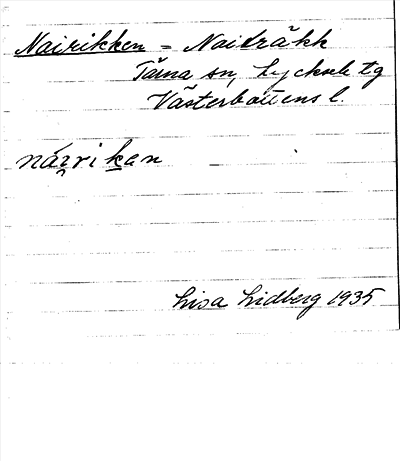 Nairikken = Naiträkk
Tärna sn, Lycksele tg
Västerbottens l.
nái̯rikan
Lisa Lidberg 1935